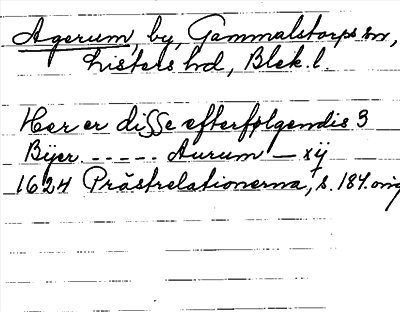 Agerum, by, Gammalstorps sn,
Listers hd, Blek. l.
Her er disse efterfølgendis 3
Bÿer. - - - - - Aurum — xij
1624 Prästrelationerna, s. 184. orig